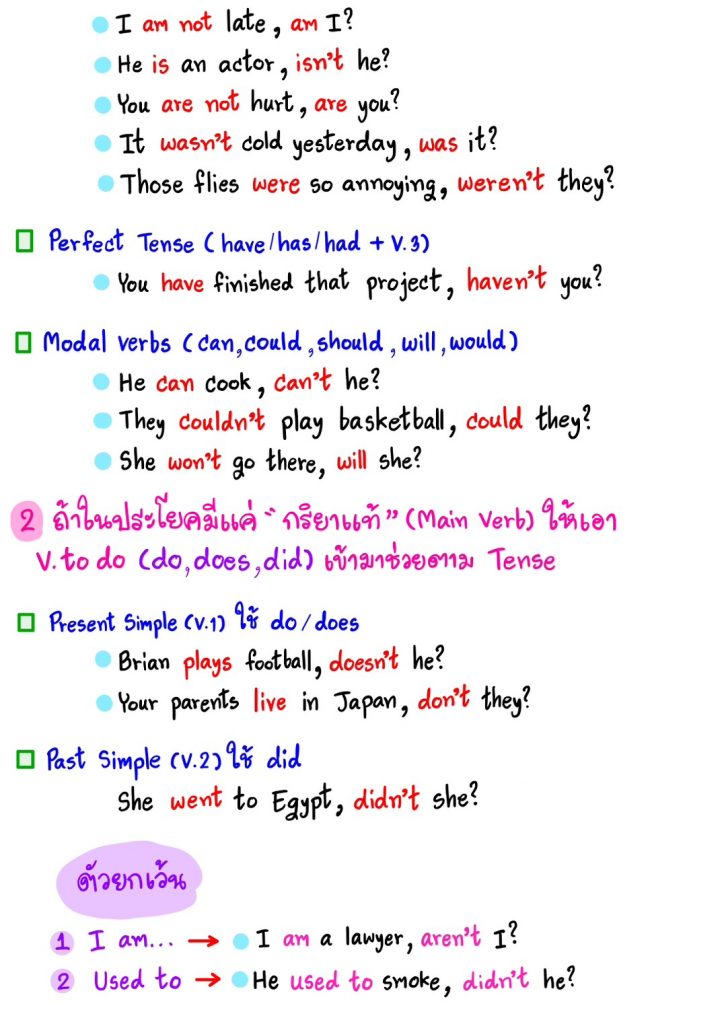 I am not late, am I?
He is an actor, isn't he?
You are not hurt, are you?
It wasn't cold yesterday, was it?
Those flies were so annoying, weren't they?
Perfect Tense (have/has/had + V.3)
You have finished that project, haven't you?
Modal verbs (can, could, should, will, would)
He can cook, can't he?
They couldn't play basketball, could they?
She won't go there, will she?
2 ถ้าในประโยคมีแค่ "กริยาแท้" (Main Verb) ให้เอา
V. to do (do, does, did) เข้ามาช่วยตาม Tense
Present Simple (V.1) ใช้ do/does
Brian plays football, doesn't he?
Your parents live in Japan, don't they?
Past Simple (V.2) ใช้ did
She went to Egypt, didn't she?
ตัวยกเว้น
1 I am... → I am a lawyer, aren't I?
2 Used to → He used to smoke, didn't he?